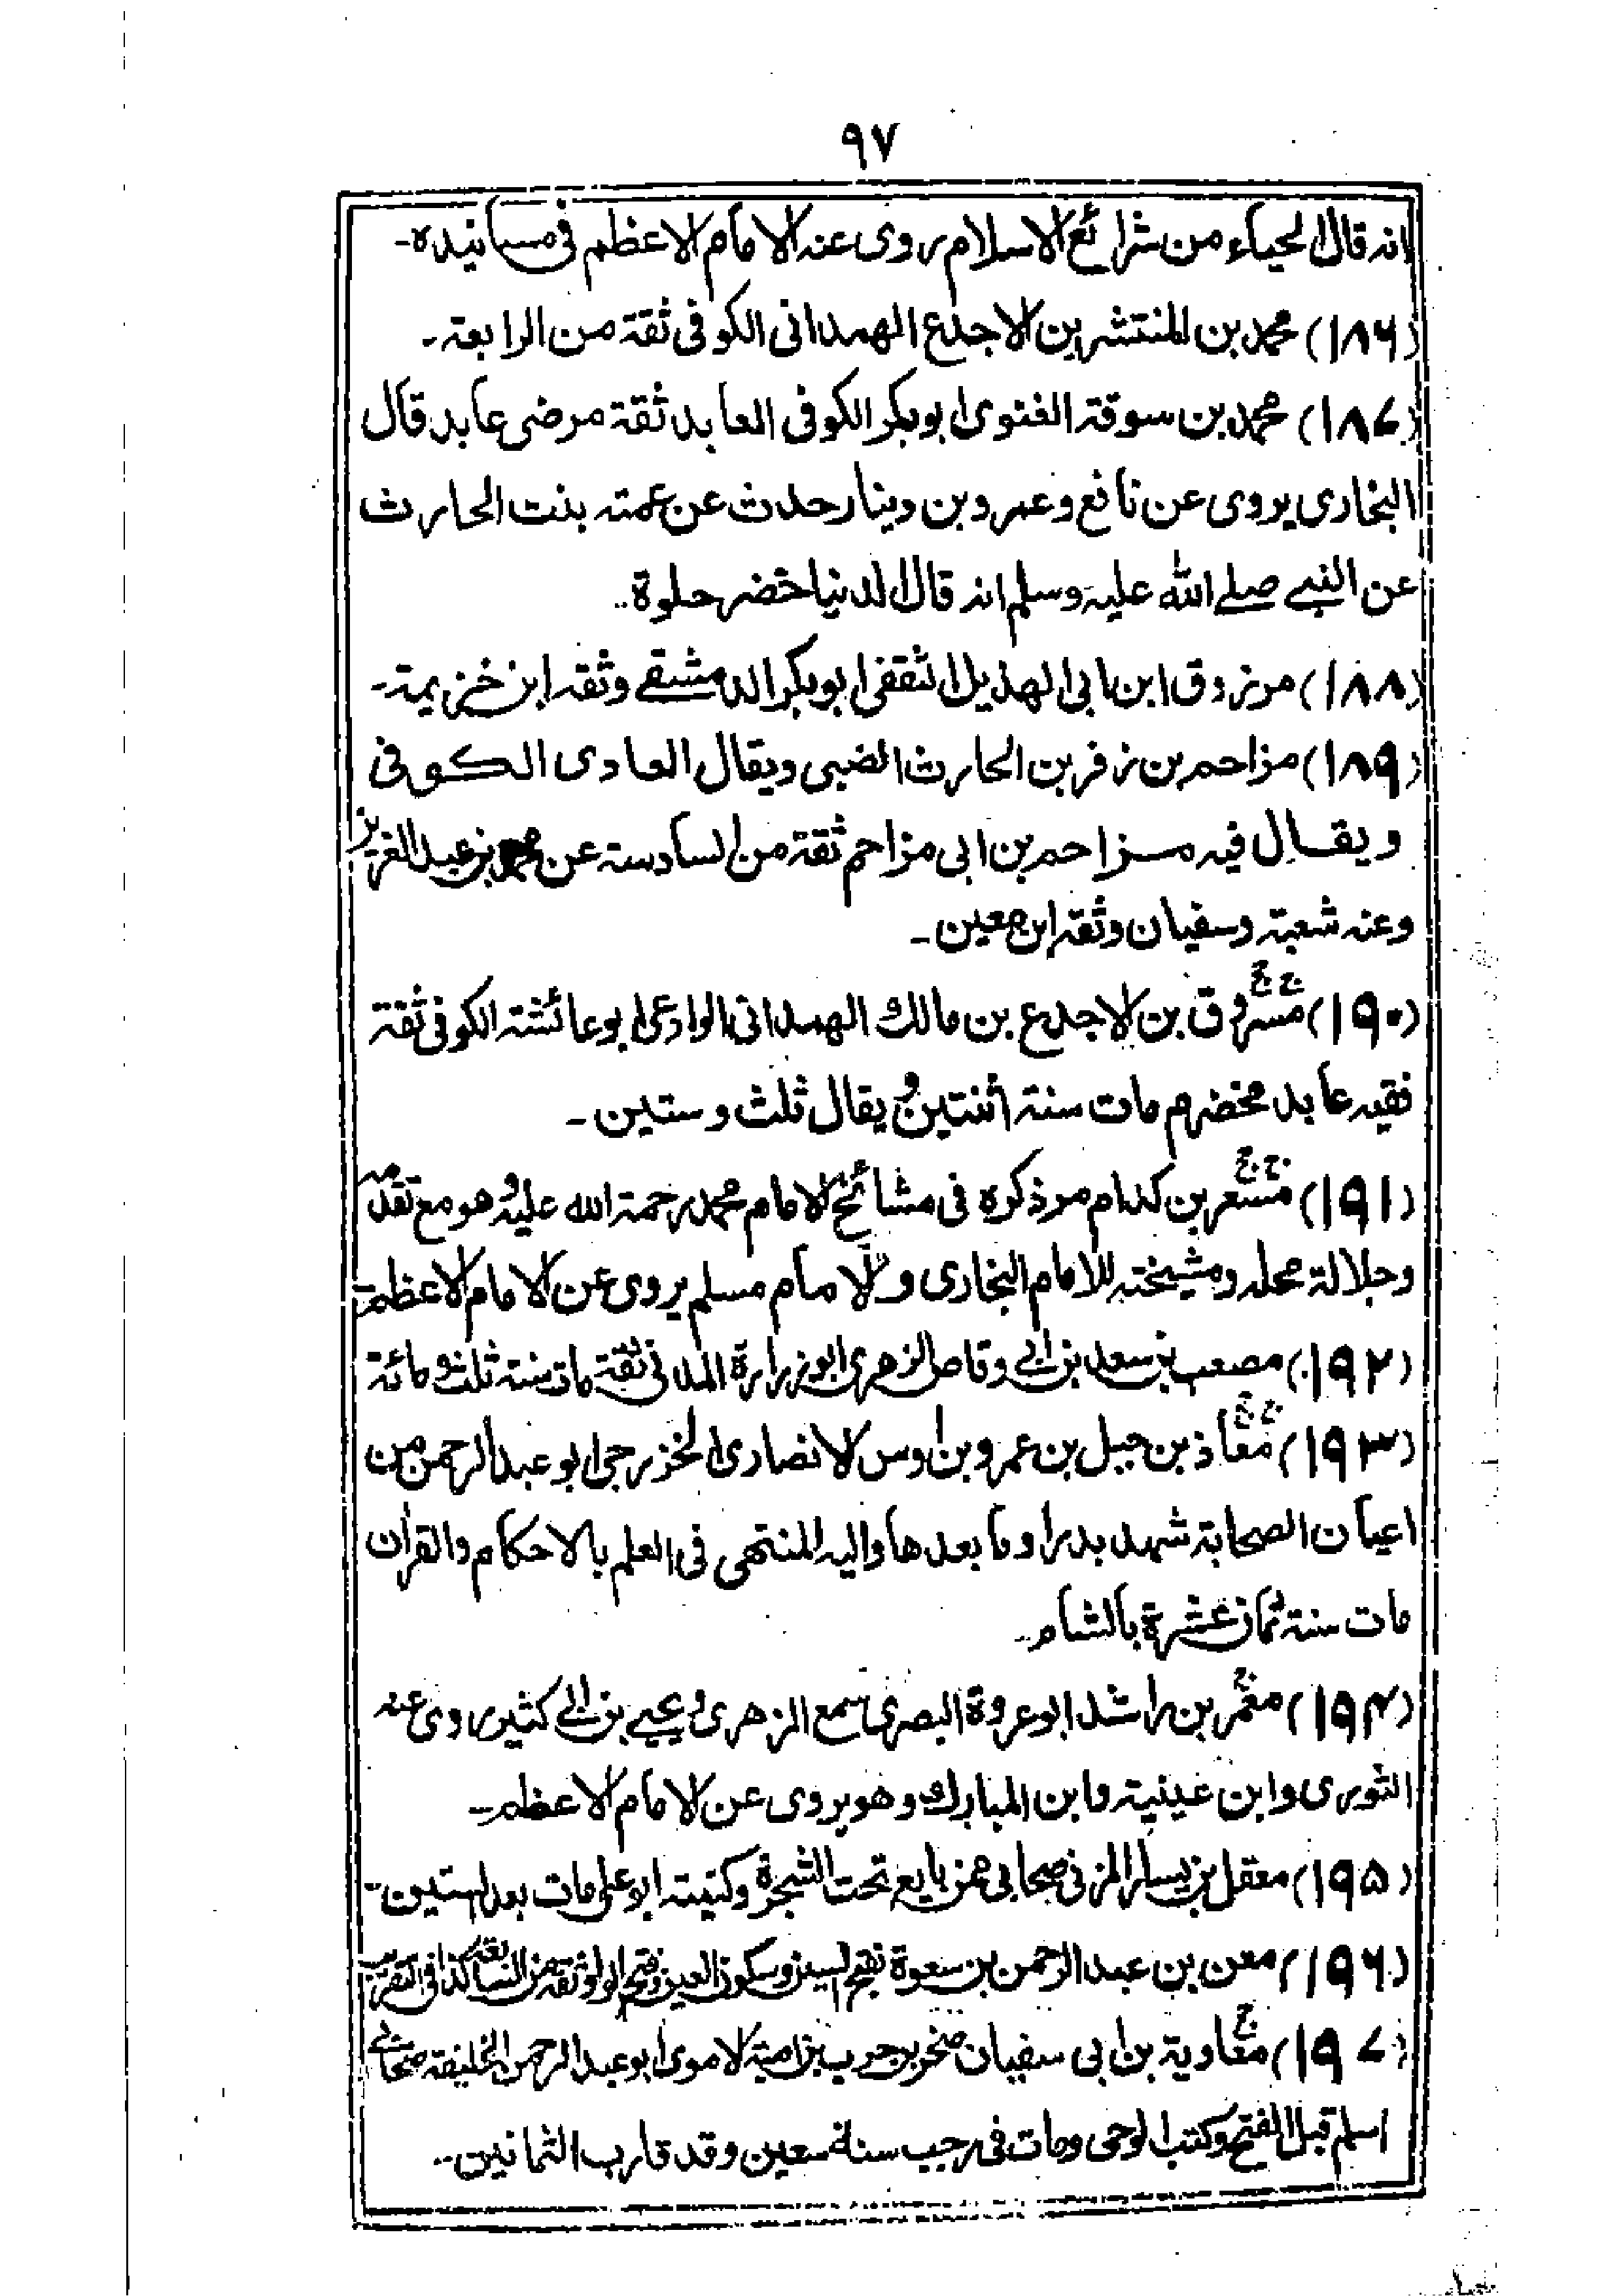 ٩٧
انه قال الحياء من شرائع الاسلام روى عنه الامام الاعظم فى مسانيده۔
(١٨٦) محمد بن المنتشر بن الاجدع الهمدانى الكوفى ثقة من الرابعة۔
(١٨٧) محمد بن سوقة الغنوى ابو بكر الكوفى العابد ثقة مرضى عابد قال
البخارى يروى عن نافع وعمرو بن دينار حدث عن عمته بنت الحارث
عن النبى صلى الله عليه وسلم انه قال الدنيا خضر حلوة۔
(١٨٨) مرزوق ابن ابى الهذيل الثقفى ابو بكر الدمشقى وثقه ابن خزيمة۔
(١٨٩) مزاحم بن زفر بن الحارث الضبى ويقال العادى الكوفى
ويقال فيه مزاحم بن ابى مزاحم ثقة من السادسة عن محمد بن عبد العزيز
وعنه شعبة وسفيان وثقه ابن معين۔
(١٩٠) مسروق بن الاجدع بن مالك الهمدانى الوادعى ابو عائشة الكوفى ثقة
فقيه عابد مخضرم مات سنة اثنتين و يقال ثلث وستين۔
(١٩١) مسعر بن كدام مر ذكره فى مشائخ الامام محمد رحمة الله عليه و هو مع تقدمه
وجلالة محله ومشيخته للامام البخارى ولامام مسلم يروى عن الامام الاعظم۔
(١٩٢) مصعب بن سعد بن ابى وقاص الزهرى ابو زرارة المدنى ثقة مات سنة ثلث و مائة
(١٩٣) معاذ بن جبل بن عمرو بن اوس الانصارى الخزرجى ابو عبد الرحمن من
اعيان الصحابة شهد بدرا وما بعدها واليه المنتهى فى العلم بالاحكام والقرآن
مات سنة ثمان عشرة بالشام۔
(١٩٤) معمر بن راشد ابو عروة البصرى سمع الزهرى و يحيى بن ابى كثير روى عنه
الثورى وابن عينية وابن المبارك وهو يروى عن الامام الاعظم۔
(١٩٥) معقل بن يسار المزنى صحابى ممن بايع تحت الشجرة وكنيته ابو على مات بعد الستين۔
(١٩٦) معن بن عبد الرحمن بن سعوة بفتح السين وسكون العين وفتح الواو ثقة من السابعة كذا فى التقريب
(١٩٧) معاوية بن ابى سفيان صخر بن حرب بن امية الاموى ابو عبد الرحمن الخليفة صحابى
اسلم قبل الفتح وكتب الوحى ومات فى رجب سنة سعين وقد قارب الثمانين۔